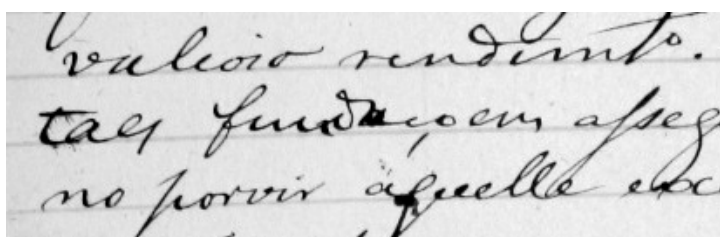 valioso rendimto.
taes fundações asseg
no porvir aquelle exc